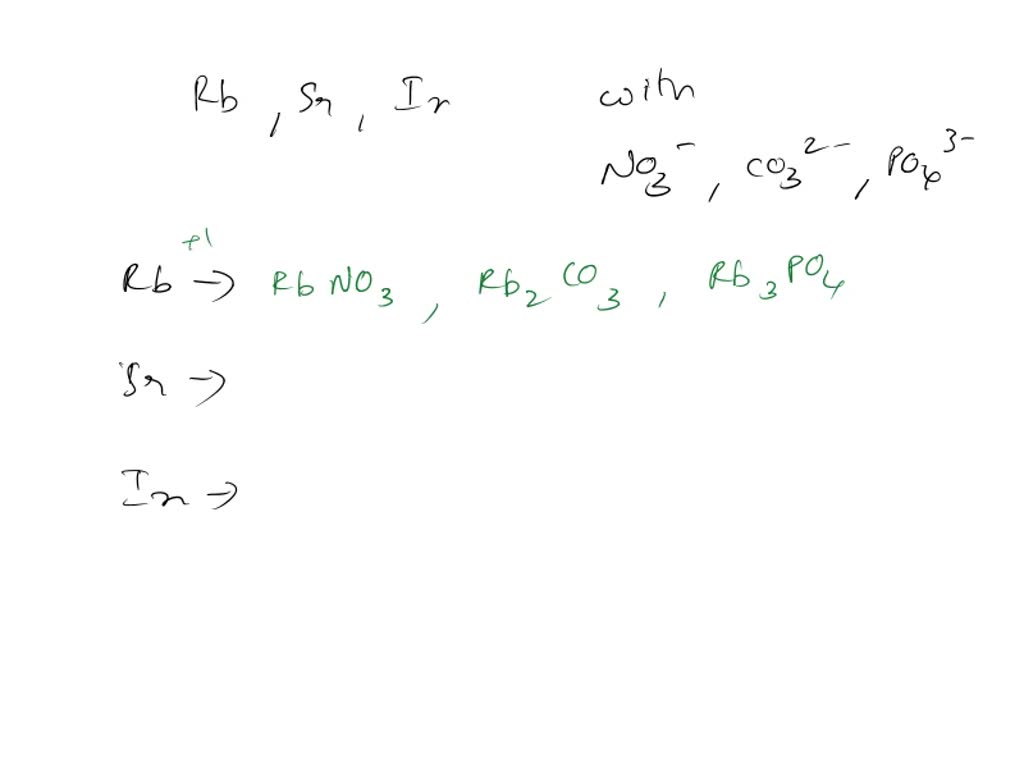 Rb , Sr , Ir with
NO₃⁻ , CO₃²⁻ , PO₄³⁻
+1
Rb → RbNO₃ , Rb₂CO₃ , Rb₃PO₄
Sr →
Ir →